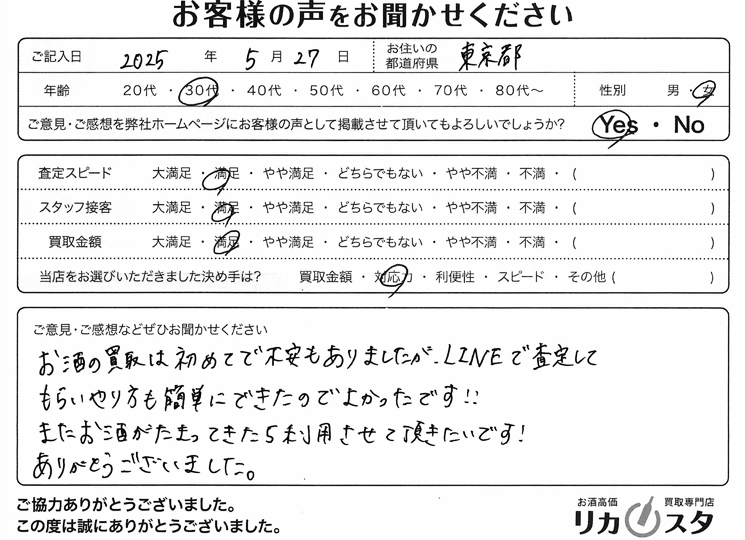 お客様の声をお聞かせください
ご記入日 2025 年 5 月 27 日 お住いの都道府県 東京都
年齢 20代 ・ 30代 ・ 40代 ・ 50代 ・ 60代 ・ 70代 ・ 80代～ 性別 男 ・ 女
ご意見・ご感想を弊社ホームページにお客様の声として掲載させて頂いてもよろしいでしょうか? Yes ・ No
査定スピード 大満足 ・ 満足 ・ やや満足 ・ どちらでもない ・ やや不満 ・ 不満 ・ ( )
スタッフ接客 大満足 ・ 満足 ・ やや満足 ・ どちらでもない ・ やや不満 ・ 不満 ・ ( )
買取金額 大満足 ・ 満足 ・ やや満足 ・ どちらでもない ・ やや不満 ・ 不満 ・ ( )
当店をお選びいただきました決め手は? 買取金額 ・ 対応力 ・ 利便性 ・ スピード ・ その他 ( )
ご意見・ご感想などぜひお聞かせください
お酒の買取は初めてで不安もありましたが、LINEで査定して
もらいやり方も簡単にできたのでよかったです!!
またお酒がたまってきたら利用させて頂きたいです!
ありがとうございました。
ご協力ありがとうございました。
この度は誠にありがとうございました。
お酒高価 買取専門店
リカスタ